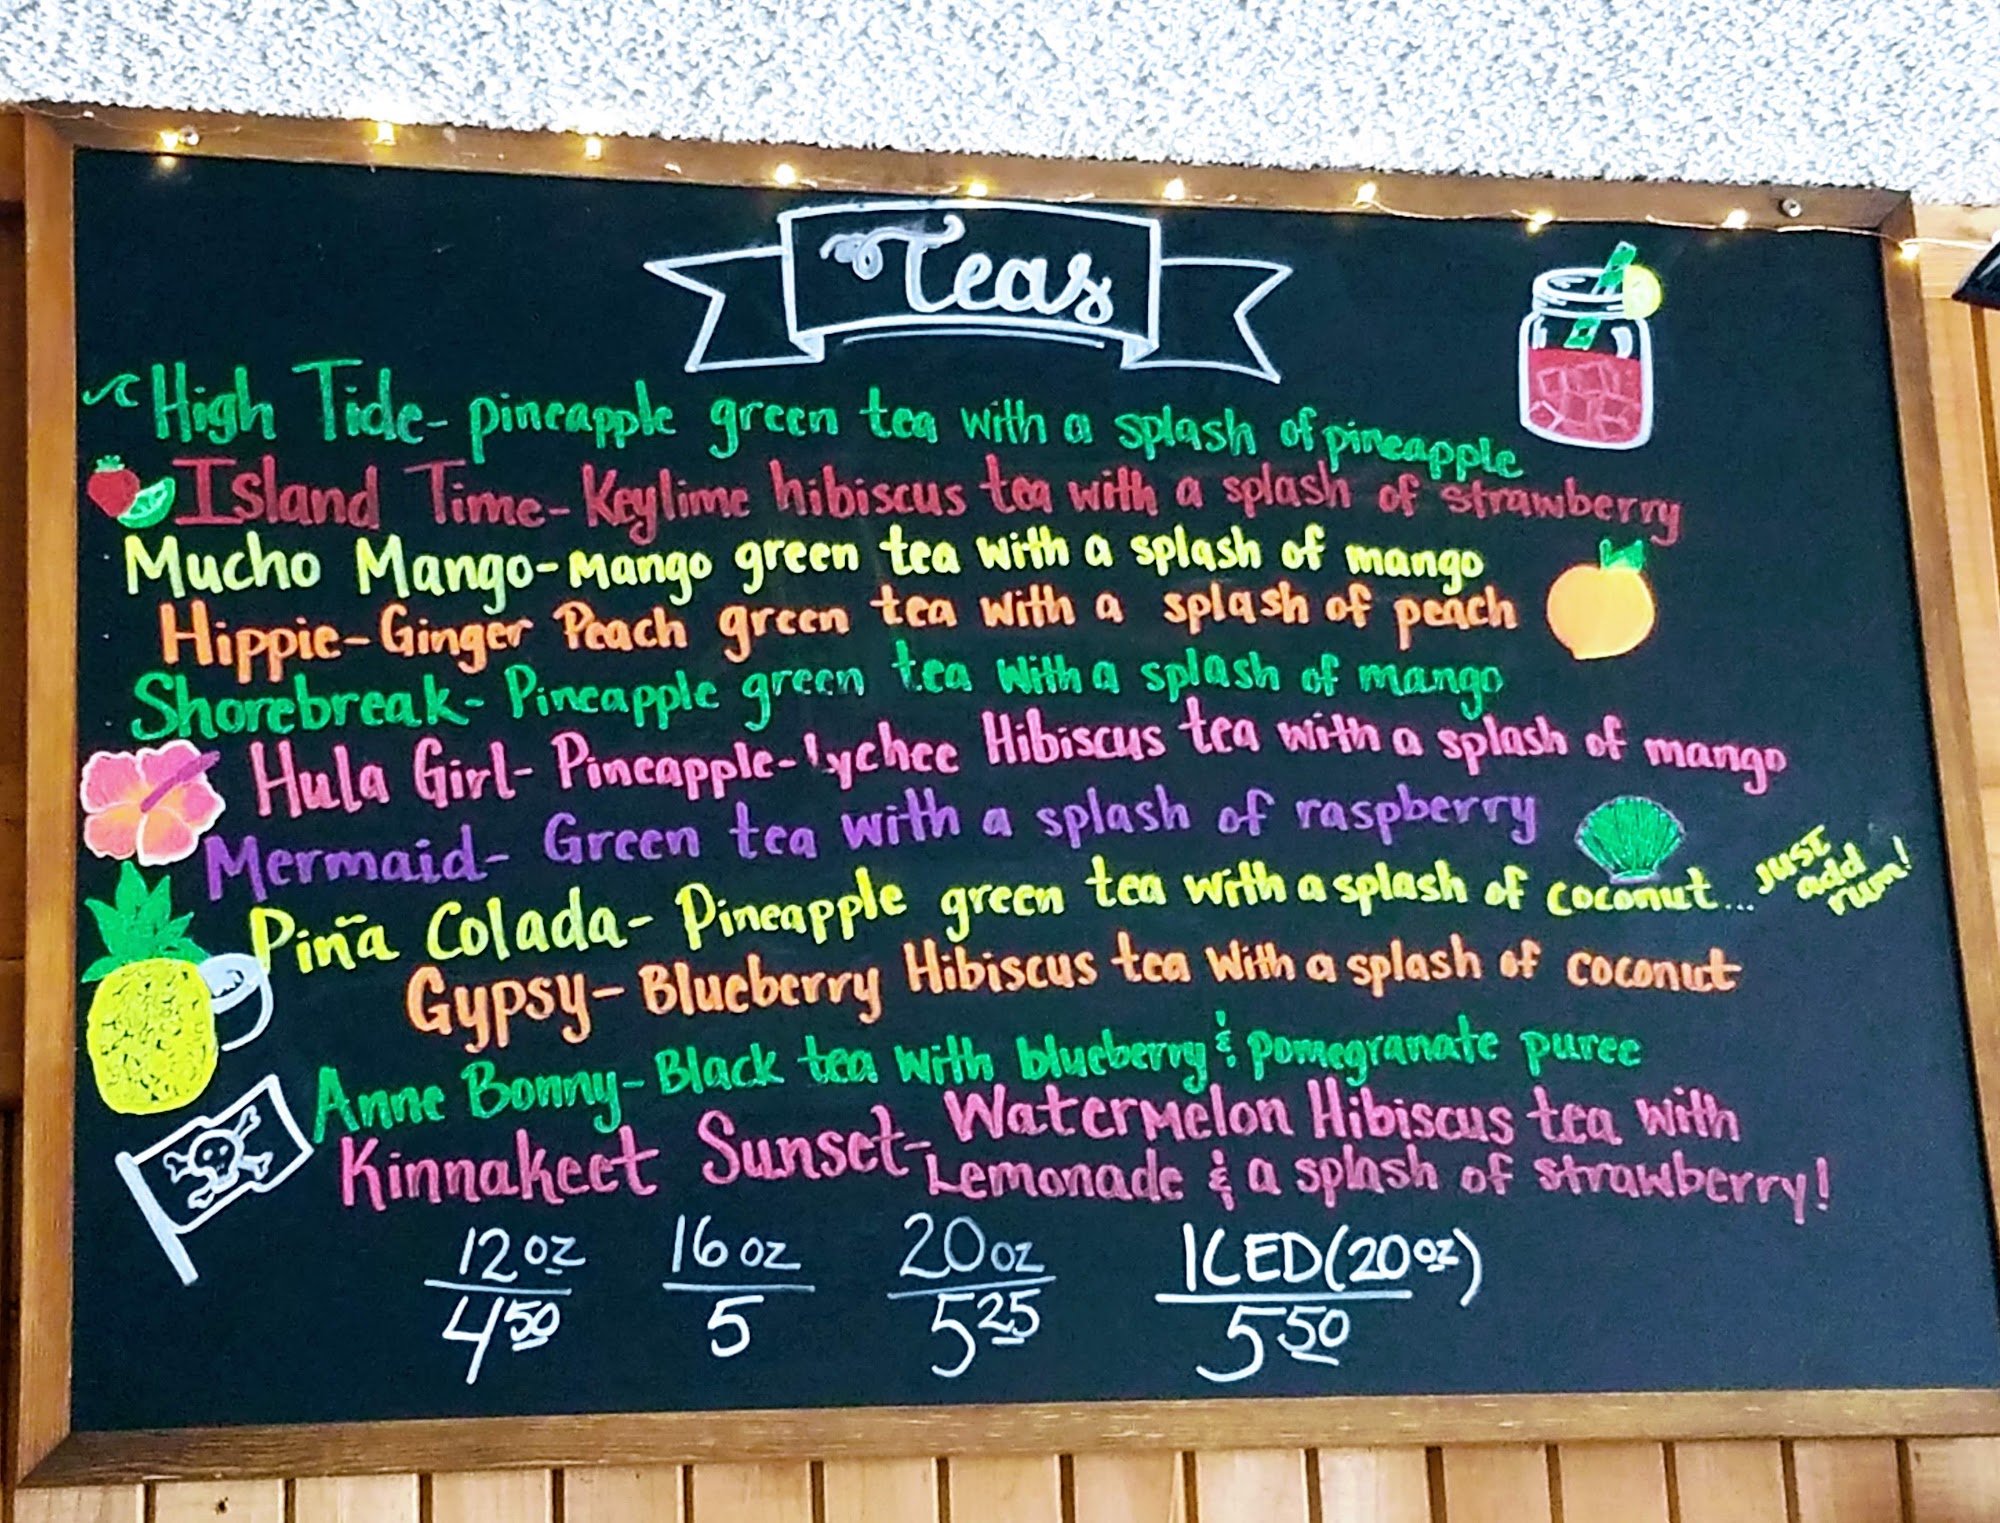 Teas
High Tide- pineapple green tea with a splash of pineapple
Island Time- Keylime hibiscus tea with a splash of strawberry
Mucho Mango- Mango green tea with a splash of mango
Hippie- Ginger Peach green tea with a splash of peach
Shorebreak- Pineapple green tea with a splash of mango
Hula Girl- Pineapple-lychee Hibiscus tea with a splash of mango
Mermaid- Green tea with a splash of raspberry
Piña Colada- Pineapple green tea with a splash of coconut...
Just
add
rum!
Gypsy- Blueberry Hibiscus tea with a splash of coconut
Anne Bonny- Black tea with blueberry & pomegranate puree
Kinnakeet Sunset- Watermelon Hibiscus tea with
Lemonade & a splash of strawberry!
12oz 16oz 20oz ICED(20oz)
4.50 5 5.25 5.50